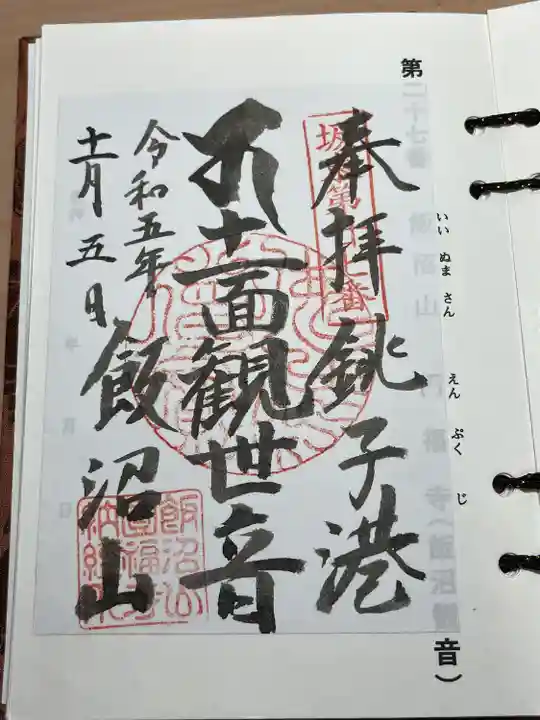 第二十七番 飯沼山 円福寺(飯沼観音)
いいぬまさん えんぷくじ
奉拝 銚子港
十一面観世音
飯沼山
令和五年
十一月五日
坂東第二十七番
飯沼山
円福寺